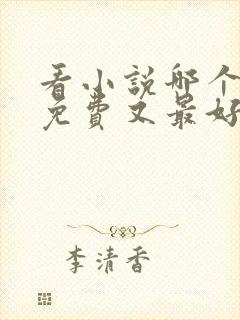 看小说哪个
免费又最好
李清香